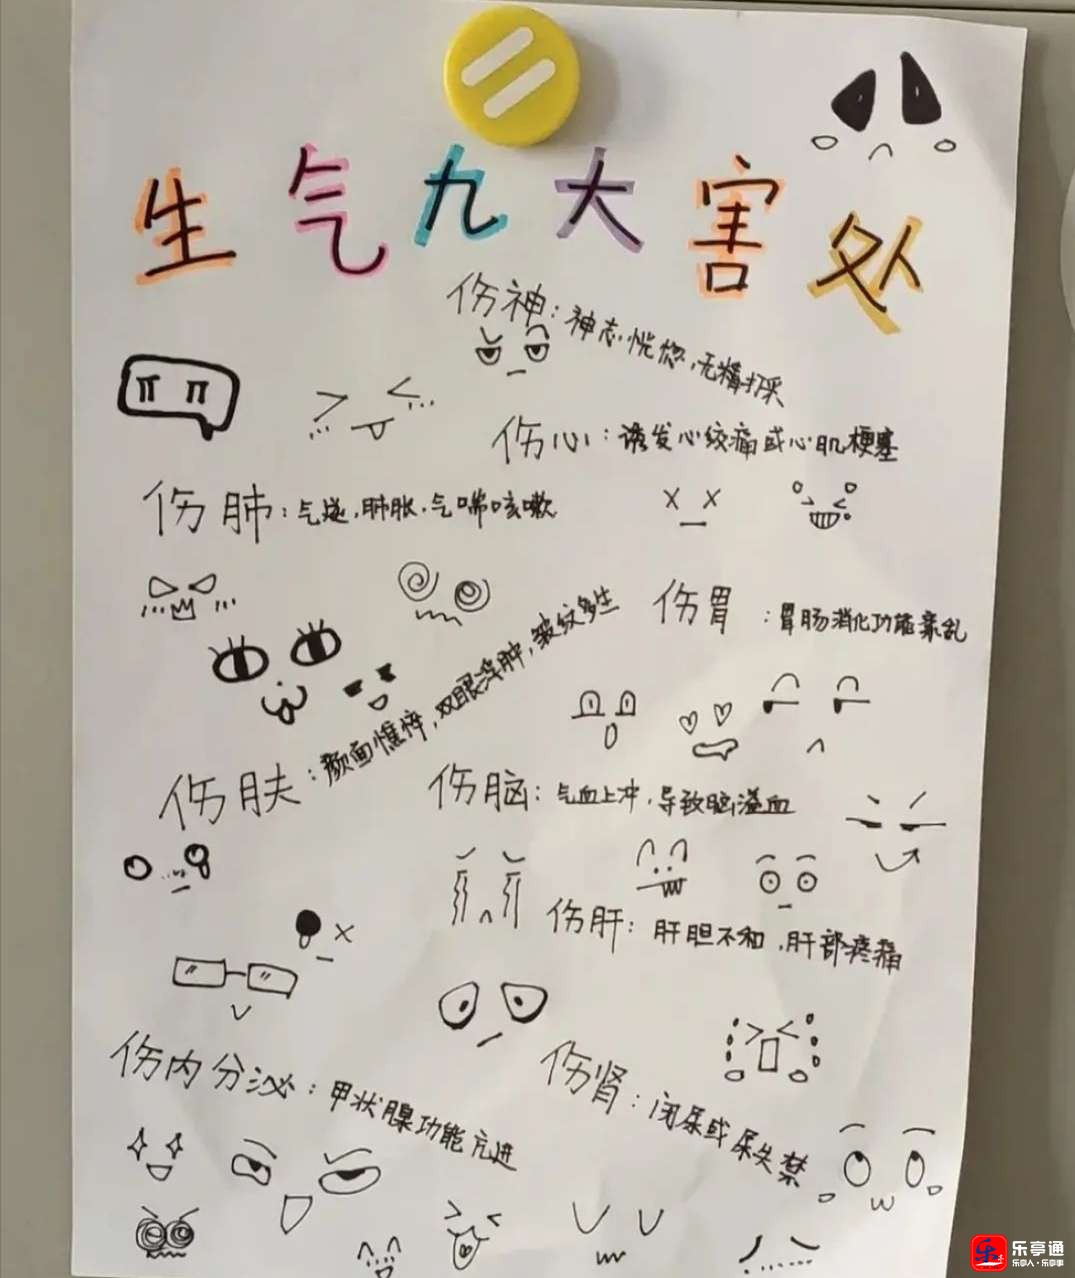 生气九大害处
伤神：神志恍惚，无精打采
伤心：诱发心绞痛或心肌梗塞
伤肺：气逆，肺胀，气喘咳嗽
伤胃：胃肠消化功能紊乱
伤肤：颜面憔悴，双眼浮肿，皱纹多生
伤脑：气血上冲，导致脑溢血
伤肝：肝胆不和，肝部疼痛
伤内分泌：甲状腺功能亢进
伤肾：闭尿或尿失禁
乐亭通
乐亭人·乐亭事